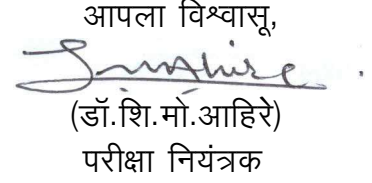 आपला विश्वासू,
(डॉ.शि.मो.आहिरे)
परीक्षा नियंत्रक